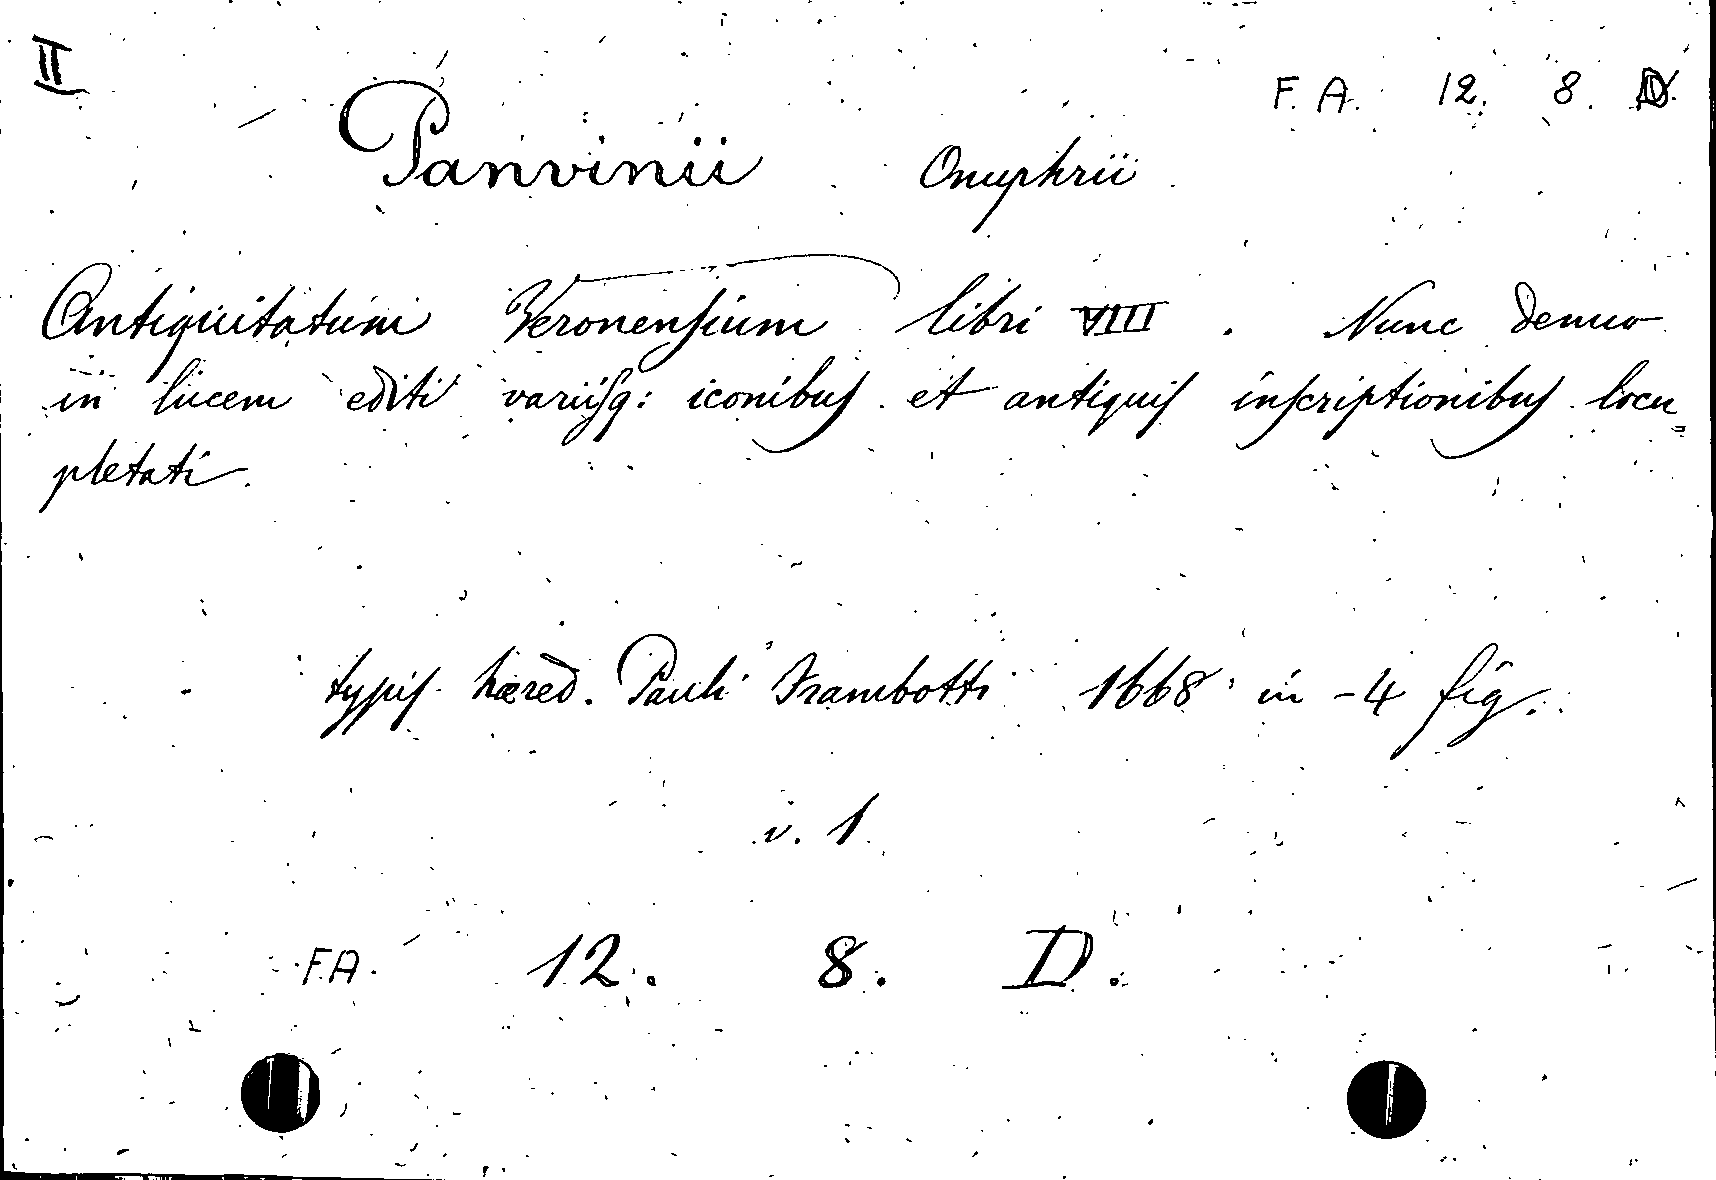 II
F. A. 12. 8. D.
Panvinii Onuphrii
Antiquitatum Veronensium libri VIII. Nunc denuo
in lucem editi variisq: iconibus et antiquis inscriptionibus locu=
pletati.
typis hæred. Pauli Frambotti 1668 in -4 fig.
v. 1
F.A. 12. 8. D.